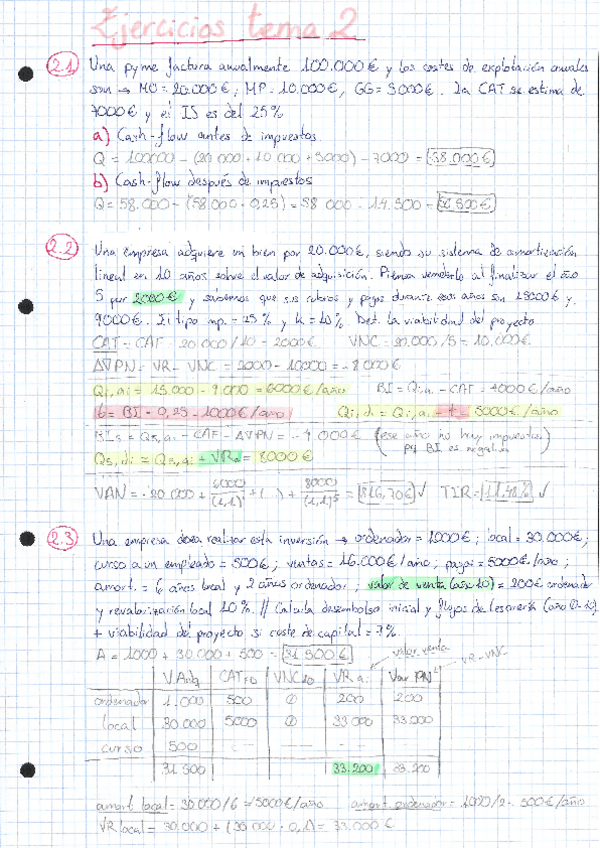 Ejercicios tema 2
2.1 Una pyme factura anualmente 100.000€ y los costes de explotación anuales
son → MO = 20.000€; MP = 10.000€, GG = 5000€. La CAT se estima de
7000€ y el IS es del 25%
a) Cash-flow antes de impuestos
Q = 100000 - (20 000 + 10 000 + 5000) - 7000 = 58.000€
b) Cash-flow después de impuestos
Q = 58.000 - (58 000 · 0,25) = 58 000 - 14.500 =
2.2 Una empresa adquiere un bien por 20.000€, siendo su sistema de amortización
lineal en 10 años sobre el valor de adquisición. Piensa venderlo al finalizar el año
5 por 2000€ y sabemos que sus cobros y pagos durante esos años son 15000€ y
9000€. Si tipo imp. = 25% y k = 10%. Det. la viabilidad del proyecto
CAT = CAF = 20 000/10 = 2000€ VNC = 20.000/5 = 10.000€
ΔVPN = VR - VNC = 2000 - 10000 = -8000€
Qi,ai = 15.000 - 9.000 = 6000€/año BI = Qi,ai - CAT = 4000€/año
t = BI · 0,25 = 1000€/año Qi,di = Qi,ai - t = 5000€/año
BI5 = Q5,ai - CAF - ΔVPN = -4.000€ (ese año no hay impuestos
pq BI es negativa)
Q5,di = Q5,ai + VR = 8000€
VAN = -20 000 + 5000/(1,1) + ( ) + 8000/(1,1)^5 = ✓ TIR = 11,48% ✓
2.3 Una empresa desea realizar esta inversión → ordenador = 1000€; local = 30.000€;
curso a un empleado = 500€; ventas = 16.000€/año; pagos = 5000€/año;
amort. = 6 años local y 2 años ordenador; valor de venta (año 10) = 200€ ordenador
y revalorización local 10%. // Calcula desembolso inicial y flujos de tesorería (año 0-10)
+ viabilidad del proyecto si coste de capital = 7%.
A = 1000 + 30 000 + 500 = 31 500€
valor venta VR-VNC
VAdq CATFO VNC10 VR Var PN
ordenador 1.000 500 0 200 200
local 30.000 5000 0 33 000 33.000
curso 500 - - - -
31 500 33.200 33.200
amort. local = 30 000/6 = 5000€/año amort. ordenador = 1000/2 = 500€/año
VR local = 30.000 + (30 000 · 0,1) = 33.000€